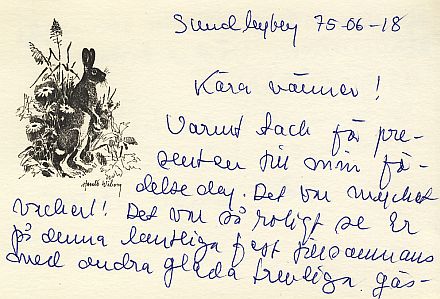 Sundbyberg 75-06-18
Kära vänner!
Varmt tack för pre-
senten till min fö-
delsedag. Det var mycket
vackert! Det var så roligt se Er
på denna lantliga fest tillsammans
med andra glada trevliga gäs-
Harald Wiberg